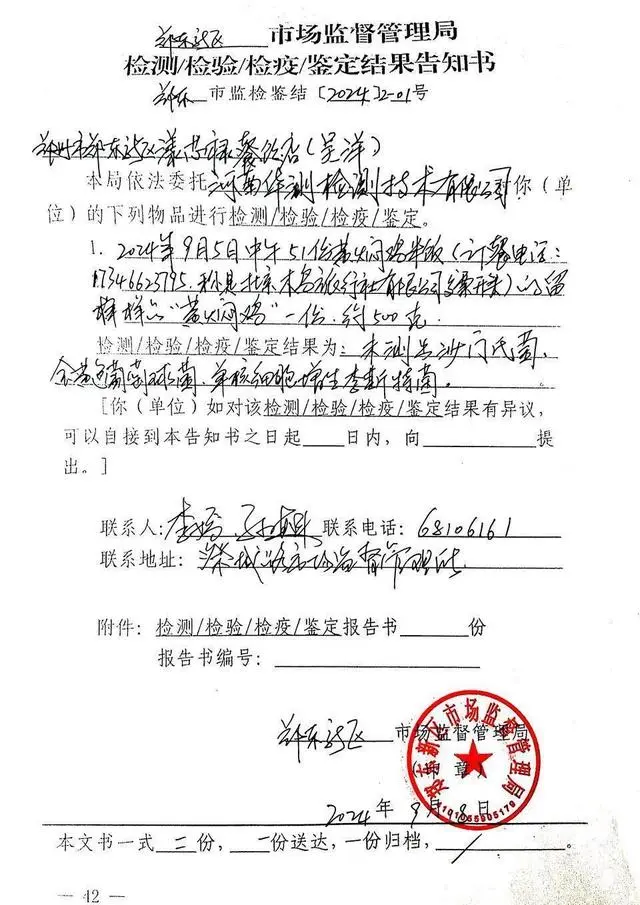 郑东新区 市场监督管理局
检测/检验/检疫/鉴定结果告知书
郑东 市监检鉴结〔2024〕2-01号
郑州市郑东新区 餐饮店(吴洋)
本局依法委托河南华测检测技术有限公司你(单
位)的下列物品进行检测/检验/检疫/鉴定。
1. 2024年9月5日中午51份黄焖鸡米饭(订餐电话:
17346623795. 有限公司 )的留
样样品“黄焖鸡”一份.约500克
检测/检验/检疫/鉴定结果为:未测出沙门氏菌,
金黄色葡萄球菌.单核细胞增生李斯特菌。
[你(单位)如对该检测/检验/检疫/鉴定结果有异议,
可以自接到本告知书之日起____日内,向________提
出。]
联系人: 联系电话:68106161
联系地址: 市场监督管理所
附件:检测/检验/检疫/鉴定报告书____份
报告书编号:________
郑东新区 市场监督管理局
(印章)
郑东新区市场监督管理局
2024年9月8日
本文书一式二份,一份送达,一份归档,/。
— 42 —